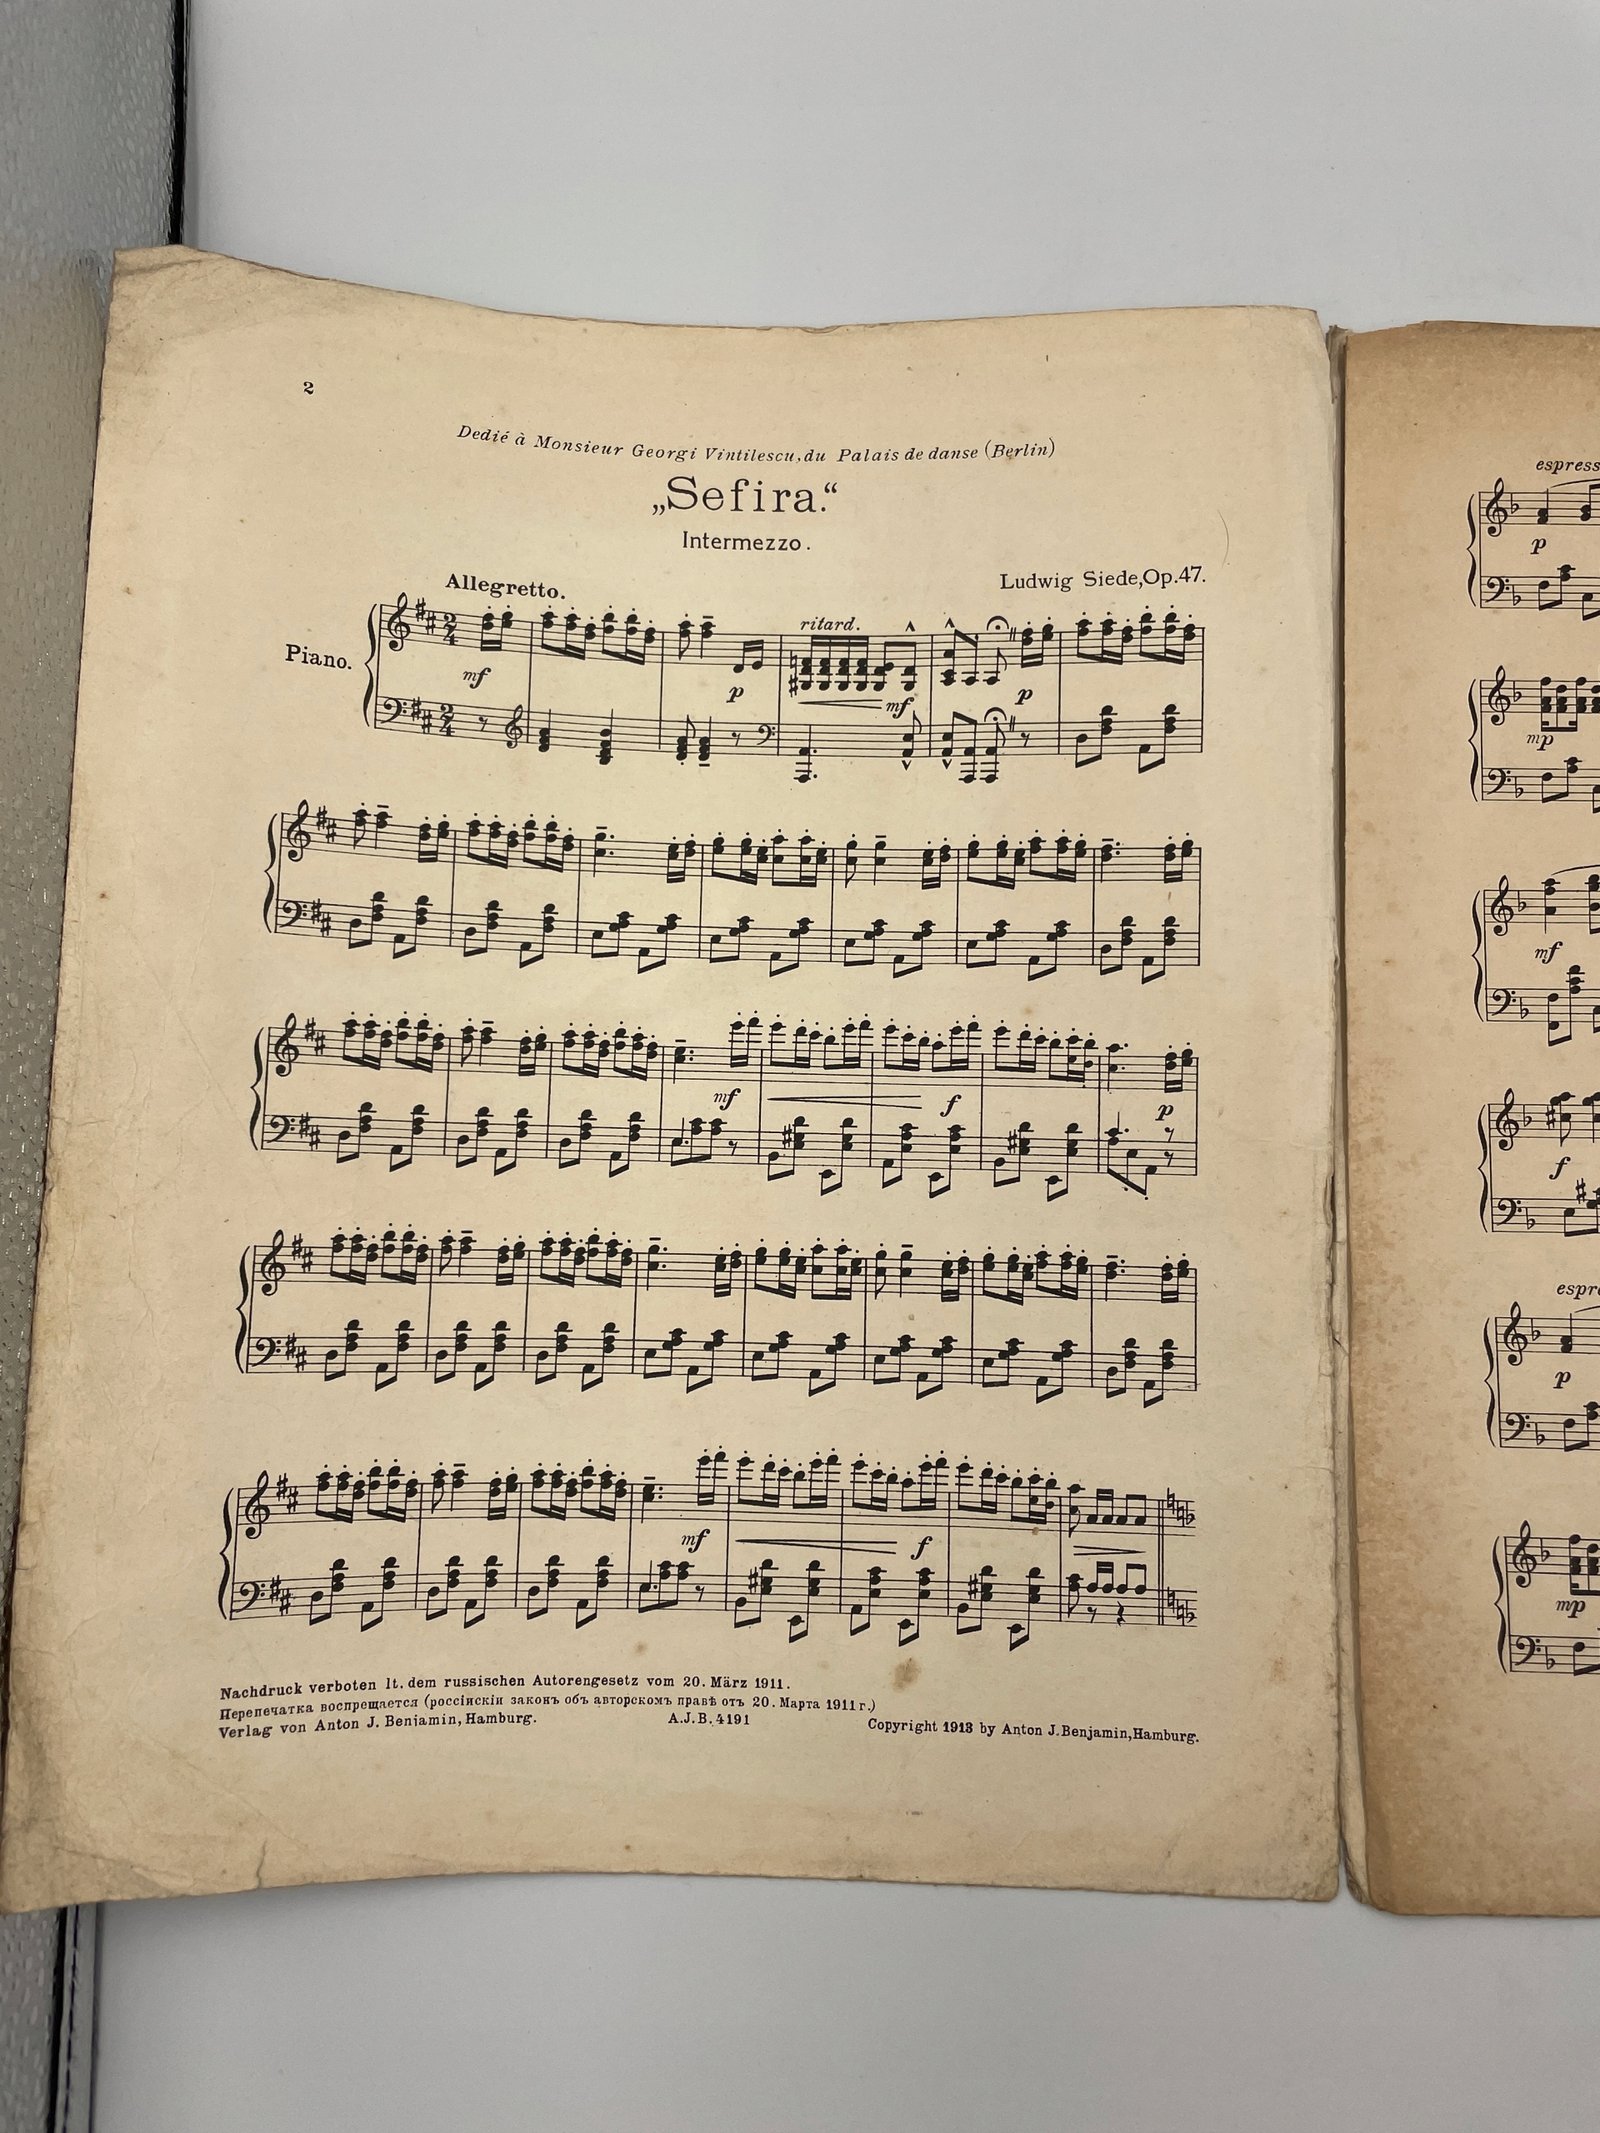 2
Dedié à Monsieur Georgi Vintilescu, du Palais de danse (Berlin)
„Sefira.“
Intermezzo.
Allegretto.
Ludwig Siede, Op. 47.
Piano.
ritard.
mf
p
mf
p
mf
f
p
mf
f
Nachdruck verboten lt. dem russischen Autorengesetz vom 20. März 1911.
Перепечатка воспрещается (россійскій законъ объ авторскомъ правѣ отъ 20. Марта 1911 г.)
Verlag von Anton J. Benjamin, Hamburg.
A.J.B. 4191
Copyright 1913 by Anton J. Benjamin, Hamburg.
p
mp
mf
f
p
mp